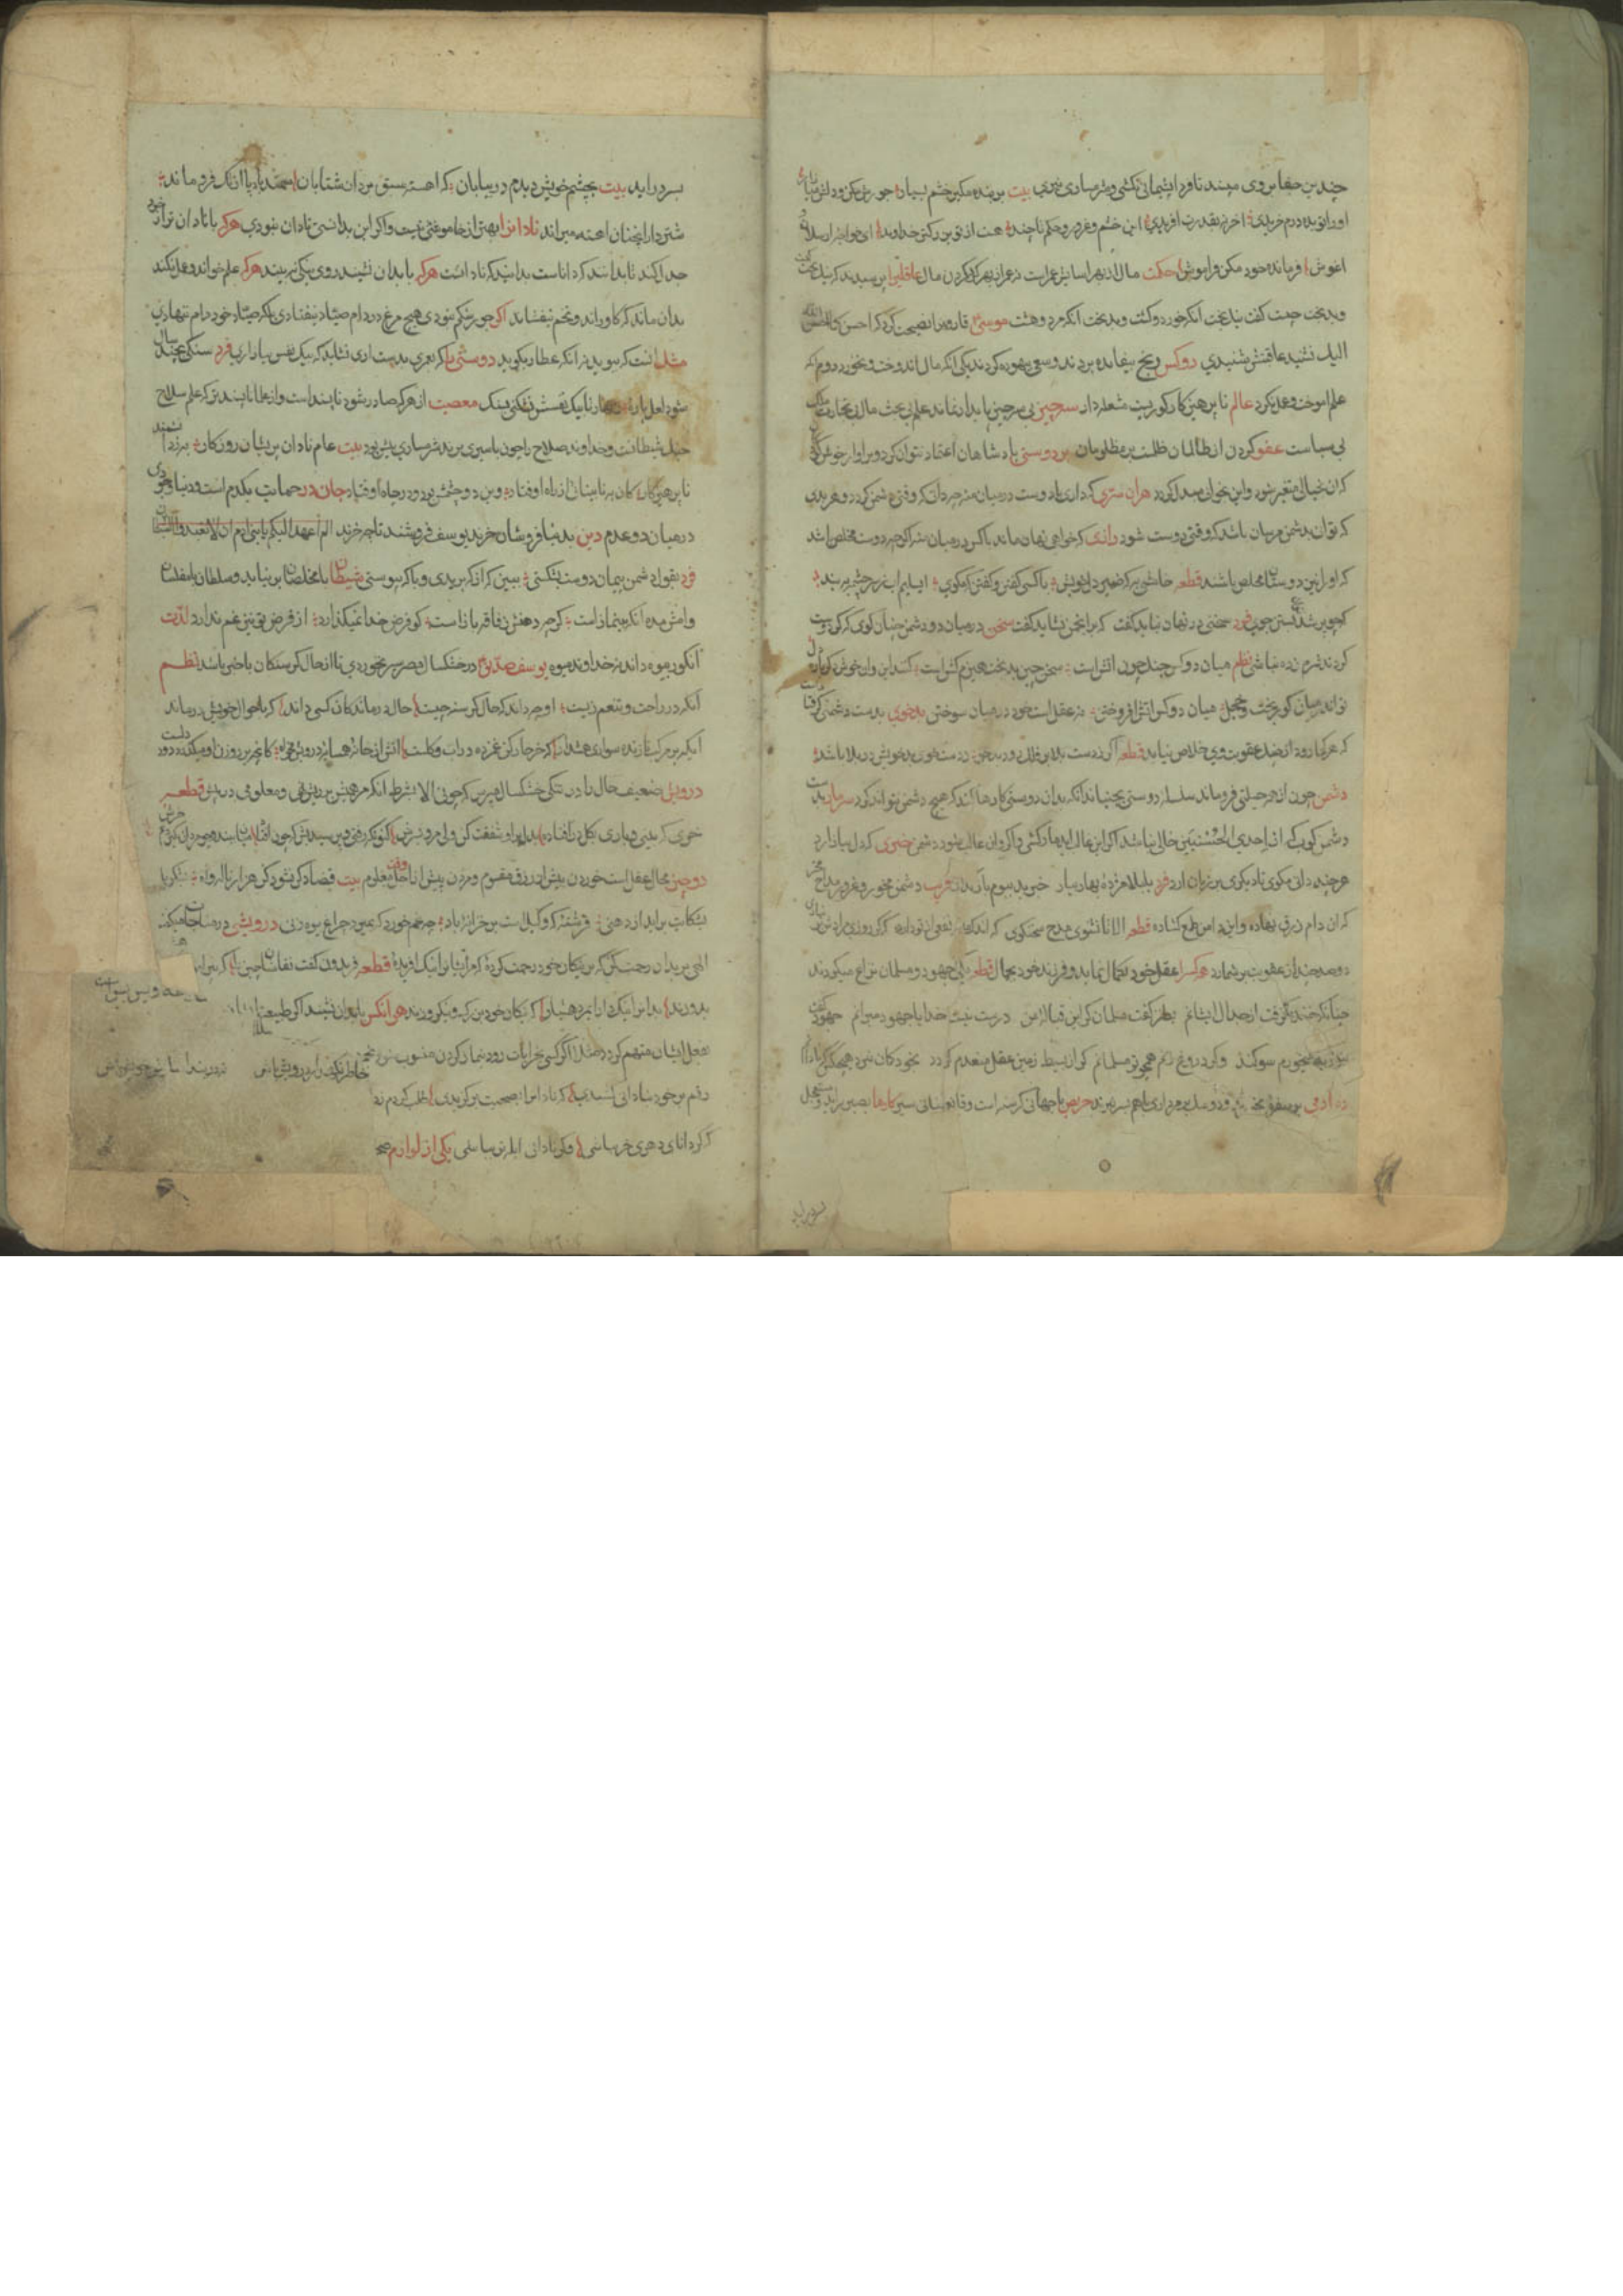 چندین جفا بر وی مپسند تا فردا پشیمانی نکشی و شرمساری نبری بیت بر بنده مگیر خشم بسیار جورش مکن و دلش میازار
او را تو بده درم خریدی آخر نه بقدرت آفریدی این خشم و غرور و حکم تا چند هست از تو بزرگتر خداوند ای خواجه ارسلان و
اغوش فرمانده خود مکن فراموش حکمت مال از بهر اسایش عمر است نه عمر از بهر گرد کردن مال عاقلی را پرسیدند که نیک بخت کیست
و بدبخت چیست گفت نیک بخت آنکه خورد و کشت و بدبخت آنکه مرد و هشت موسی قارون را نصیحت کرد که احسن کما احسن الله
الیک نشنید عاقبتش شنیدی دو کس رنج بیفایده بردند و سعی بیهوده کردند یکی آنکه مال اندوخت و نخورد دوم آنکه
علم آموخت و عمل نکرد عالم ناپرهیزکار کوریست مشعله دار سه چیز بی سه چیز پایدار نماند علم بی بحث مال بی تجارت ملک
بی سیاست عفو کردن از ظالمان ظلمست بر مظلومان بر دوستی پادشاهان اعتماد نتوان کرد و بر آواز خوش کودکان
که آن بخیالی متغیر شود و این بخوابی مبدل گردد هر آن سری که داری با دوست در میان منه چه دانی که وقتی دشمن گردد و هر بدی
که توانی بدشمن مرسان باشد که وقتی دوست شود رازی که خواهی نهان ماند با کس در میان منه اگرچه دوست مخلص باشد
که او را نیز دوستان مخلص باشند قطعه خامشی به که ضمیر دل خویش با کسی گفتن و گفتن که مگوی ای سلیم آب ز سرچشمه ببند
که چو پر شد نتوان بستن جوی فرد سخنی در نهان نباید گفت که بر انجمن نشاید گفت سخن در میان دو دشمن چنان گوی که گر دوست
گردند شرم زده نباشی نظم میان دو کس جنگ چون آتش است سخن چین بدبخت هیزم کش است کنند این و آن خوش دگر باره دل
وی اندر میان کوربخت و خجل میان دو کس آتش افروختن نه عقل است خود در میان سوختن بدخوی بدست دشمنی گرفتار است
که هر کجا رود از چنگ عقوبت وی خلاص نیابد قطعه اگر ز دست بلا بر فلک رود بدخوی ز دست خوی بد خویش در بلا باشد
دشمن چون از هر حیلتی فروماند سلسله دوستی بجنباند آنگه بدان دوستی کارها کند که هیچ دشمن نتواند کرد سر مار بدست
دشمن کوب که از احدی الحسنیین خالی نباشد اگر این غالب آید مار کشتی و اگر آن غالب شود دشمن خبری که دل بیازارد
هر چند دانی مگوی تا دیگری بر زبان آرد فرد بلبلا مژده بهار بیار خبر بد ببوم باز گذار فریب دشمن مخور و غرور مداح مخر
که آن دام زرق نهاده و این دامن طمع گشاده قطعه الا تا نشنوی مدح سخنگوی که اندک مایه نفعی از تو دارد که گر روزی مرادش بر نیاری
دو صد چندان از عیوبت بر شمارد هر کس را عقل خود بکمال نماید و فرزند خود بجمال قطعه یکی جهود و مسلمان نزاع میکردند
چنانکه خنده گرفت از جدال ایشانم بطنز گفت مسلمان گر این قباله من درست نیست خدایا جهود میرانم جهود گفت
بتوریة میخورم سوگند و گر دروغ کنم همچو تو مسلمانم گر از بسیط زمین عقل منعدم گردد بخود گمان نبرد هیچکس که نادانم
ده آدمی بر سفره بخورند و دو سگ بر مرداری باهم بسر نبرند حریص با جهانی گرسنه است و قانع بنانی سیر کارها بصبر برآید و مستعجل
بسر درآید بیت بچشم خویش دیدم در بیابان که آهسته سبق برد از شتابان سمند بادپا از تک فرو ماند
شتردار همچنان آهسته میراند نادان را بهتر از خاموشی نیست و اگر این بدانستی نادان نبودی هرکه با نادان تر از خود
جدل کند تا بدانند که داناست بدانند که نادانست هرکه با بدان نشیند روی نیکی نبیند هرکه علم خواند و عمل نکند
بدان ماند که گاو راند و تخم نیفشاند اگر جور شکم نبودی هیچ مرغ در دام صیاد نیفتادی بلکه صیاد خود دام ننهادی
مشک آنست که ببوید نه آنکه عطار بگوید دوستی را که بعمری بدست آری نشاید که بیک نفس بیازاری فرد سنگی بچند سال
شود لعل پاره زنهار تا بیک نفسش نشکنی بسنگ معصیت از هر که صادر شود ناپسند است و از علما ناپسندتر که علم سلاح
جنگ شیطانست و خداوند سلاح را چون باسیری برند شرمساری بیش برد بیت عام نادان پریشان روزگار به ز دانشمند
ناپرهیزگار کان بنابینائی از راه اوفتاد وین دو چشمش بود و در چاه اوفتاد جان در حمایت یکدم است و دنیا وجودی
در میان دو عدم دین بدنیا فروشان خرند یوسف فروشند تا چه خرند الم اعهد الیکم یا بنی آدم ان لا تعبدوا الشیطان
فرد بقول دشمن پیمان دوست بشکستی ببین که از که بریدی و با که پیوستی شیطان با مخلصان بر نیاید و سلطان با مفلسان
وامش مده آنکه بی نماز است گرچه دهنش ز فاقه باز است کو فرض خدا نمیگذارد از قرض تو نیز غم ندارد لذت
انگور بیوه داند نه خداوند میوه یوسف صدیق در خشکسال مصر سیر نخوردی تا از حال گرسنگان با خبر باشد نظم
آنکه در راحت و تنعم زیست او چه داند که حال گرسنه چیست حال درماندگان کسی داند که باحوال خویش درماند
ایکه بر مرکب تازنده سواری هشدار که خر خارکش غمزده در آب و گلست آتش از خانه همسایه درویش مخواه کانچه بر روزن او میگذرد دود دلست
درویش ضعیف حال را در تنگی خشکسال مپرس که چونی الا بشرط آنکه مرهمیش بر ریش نهی و معلومی در پیش قطعه
خری که بینی و باری بگل در افتاده بدل برو شفقت کن ولی مرو بسرش کنونکه رفتی و پرسیدیش که چون افتاد میان ببند و چو مردان بگیر دم خرش
دو چیز محال عقل است خوردن بیش از رزق مقسوم و مردن پیش از وقت معلوم بیت قضا دگر نشود گر هزار ناله و آه بشکر یا
بشکایت برآید از دهنی فرشته که وکیل است بر خزائن باد چه غم خورد که بمیرد چراغ بیوه زنی درویشی در مناجات میگفت
الهی بر بدان رحمت کن که بر نیکان خود رحمت کرده که مر ایشانرا نیک آفریده قطعه فریدون گفت نقاشان چین را که پیرامن
بدانرا نیک دار ای مرد هشیار که نیکان خود بزرگ و نیکو روزند هر آنکس با بدان نشیند اگر طبیعت
بفعل ایشان متهم گردد مثلا اگر کسی بخرابات رود بنماز کردن منسوب شود بخمر
رقم بر خود بنادانی کشیدی که نادان را بصحبت بر گزیدی طلب کردم
که گر دانای دهری خر بباشی وگر نادانی ابله تر بباشی یکی از لوازم صحبت